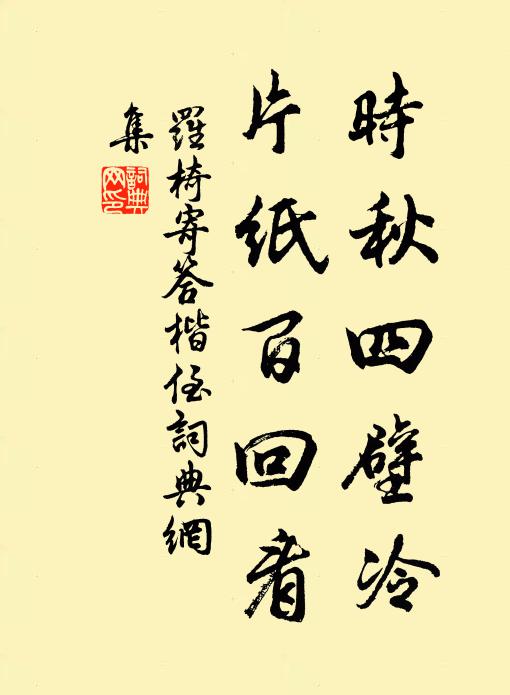 時秋四壁冷
片紙百回看
羅椅寄答楷侄詞典網
集
詞典网印